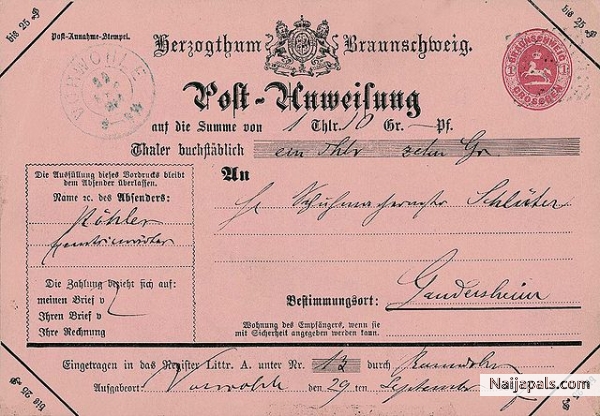 bis 25 ₰
bis 25 ₰
Post-Annahme-Stempel.
Herzogthum Braunschweig.
VORWOHLE
BRAUNSCHWEIG
1 GROSCHEN 1
Post-Anweisung
auf die Summe von 1 Thlr. 10 Gr. — Pf.
Thaler buchstäblich ein Thlr zehn Gr.
An
Die Ausfüllung dieses Vordrucks bleibt
dem Absender überlassen.
Name ꝛc. des Absenders:
Köhler
Die Zahlung bezieht sich auf:
meinen Brief v
Ihren Brief v
Ihre Rechnung
Hr Schuhmachermstr Schlüter
Bestimmungsort: Gandersheim
Wohnung des Empfängers, wenn sie
mit Sicherheit angegeben werden kann.
Eingetragen in das Register Littr. A. unter Nr. 13 durch
Aufgabeort Vorwohle den 29ten September
bis 25 ₰
bis 25 ₰
Naijapals.com